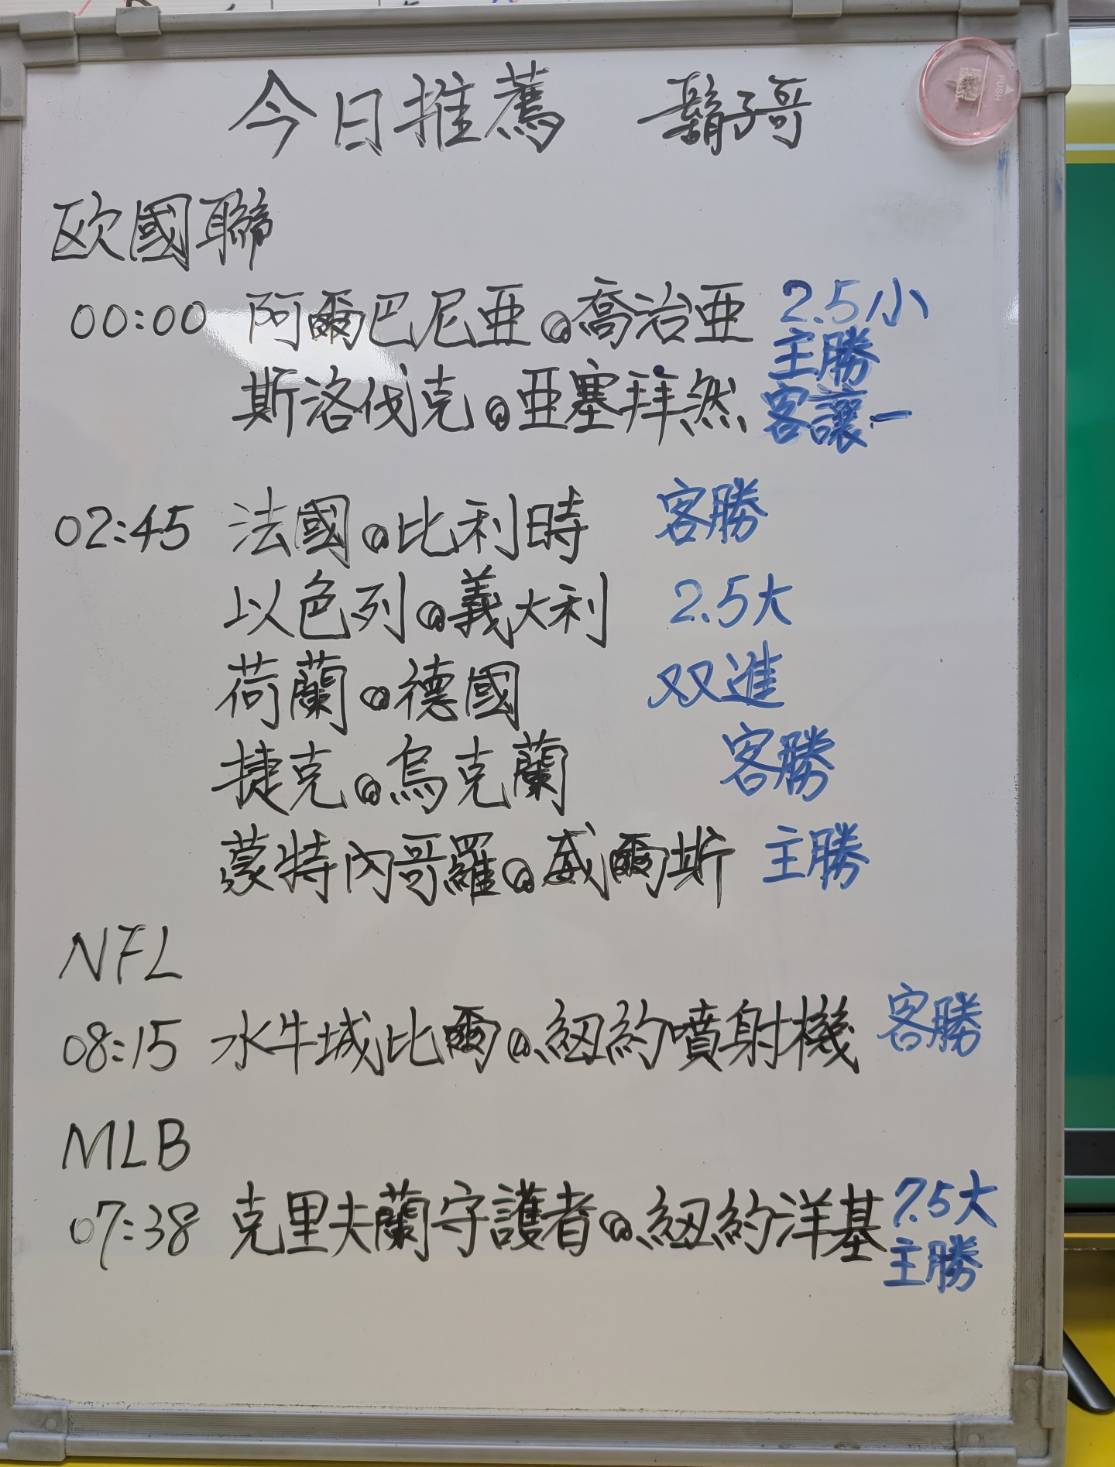 今日推薦 鬍子哥
欧國聯
00:00 阿爾巴尼亜@喬治亜 2.5小
主勝
斯洛伐克@亜塞拜然 客讓一
02:45 法國@比利時 客勝
以色列@義大利 2.5大
荷蘭@德國 双進
捷克@烏克蘭 客勝
蒙特內哥羅@威爾斯 主勝
NFL
08:15 水牛城比爾@紐約噴射機 客勝
MLB
07:38 克里夫蘭守護者@紐約洋基 7.5大
主勝
PUSH